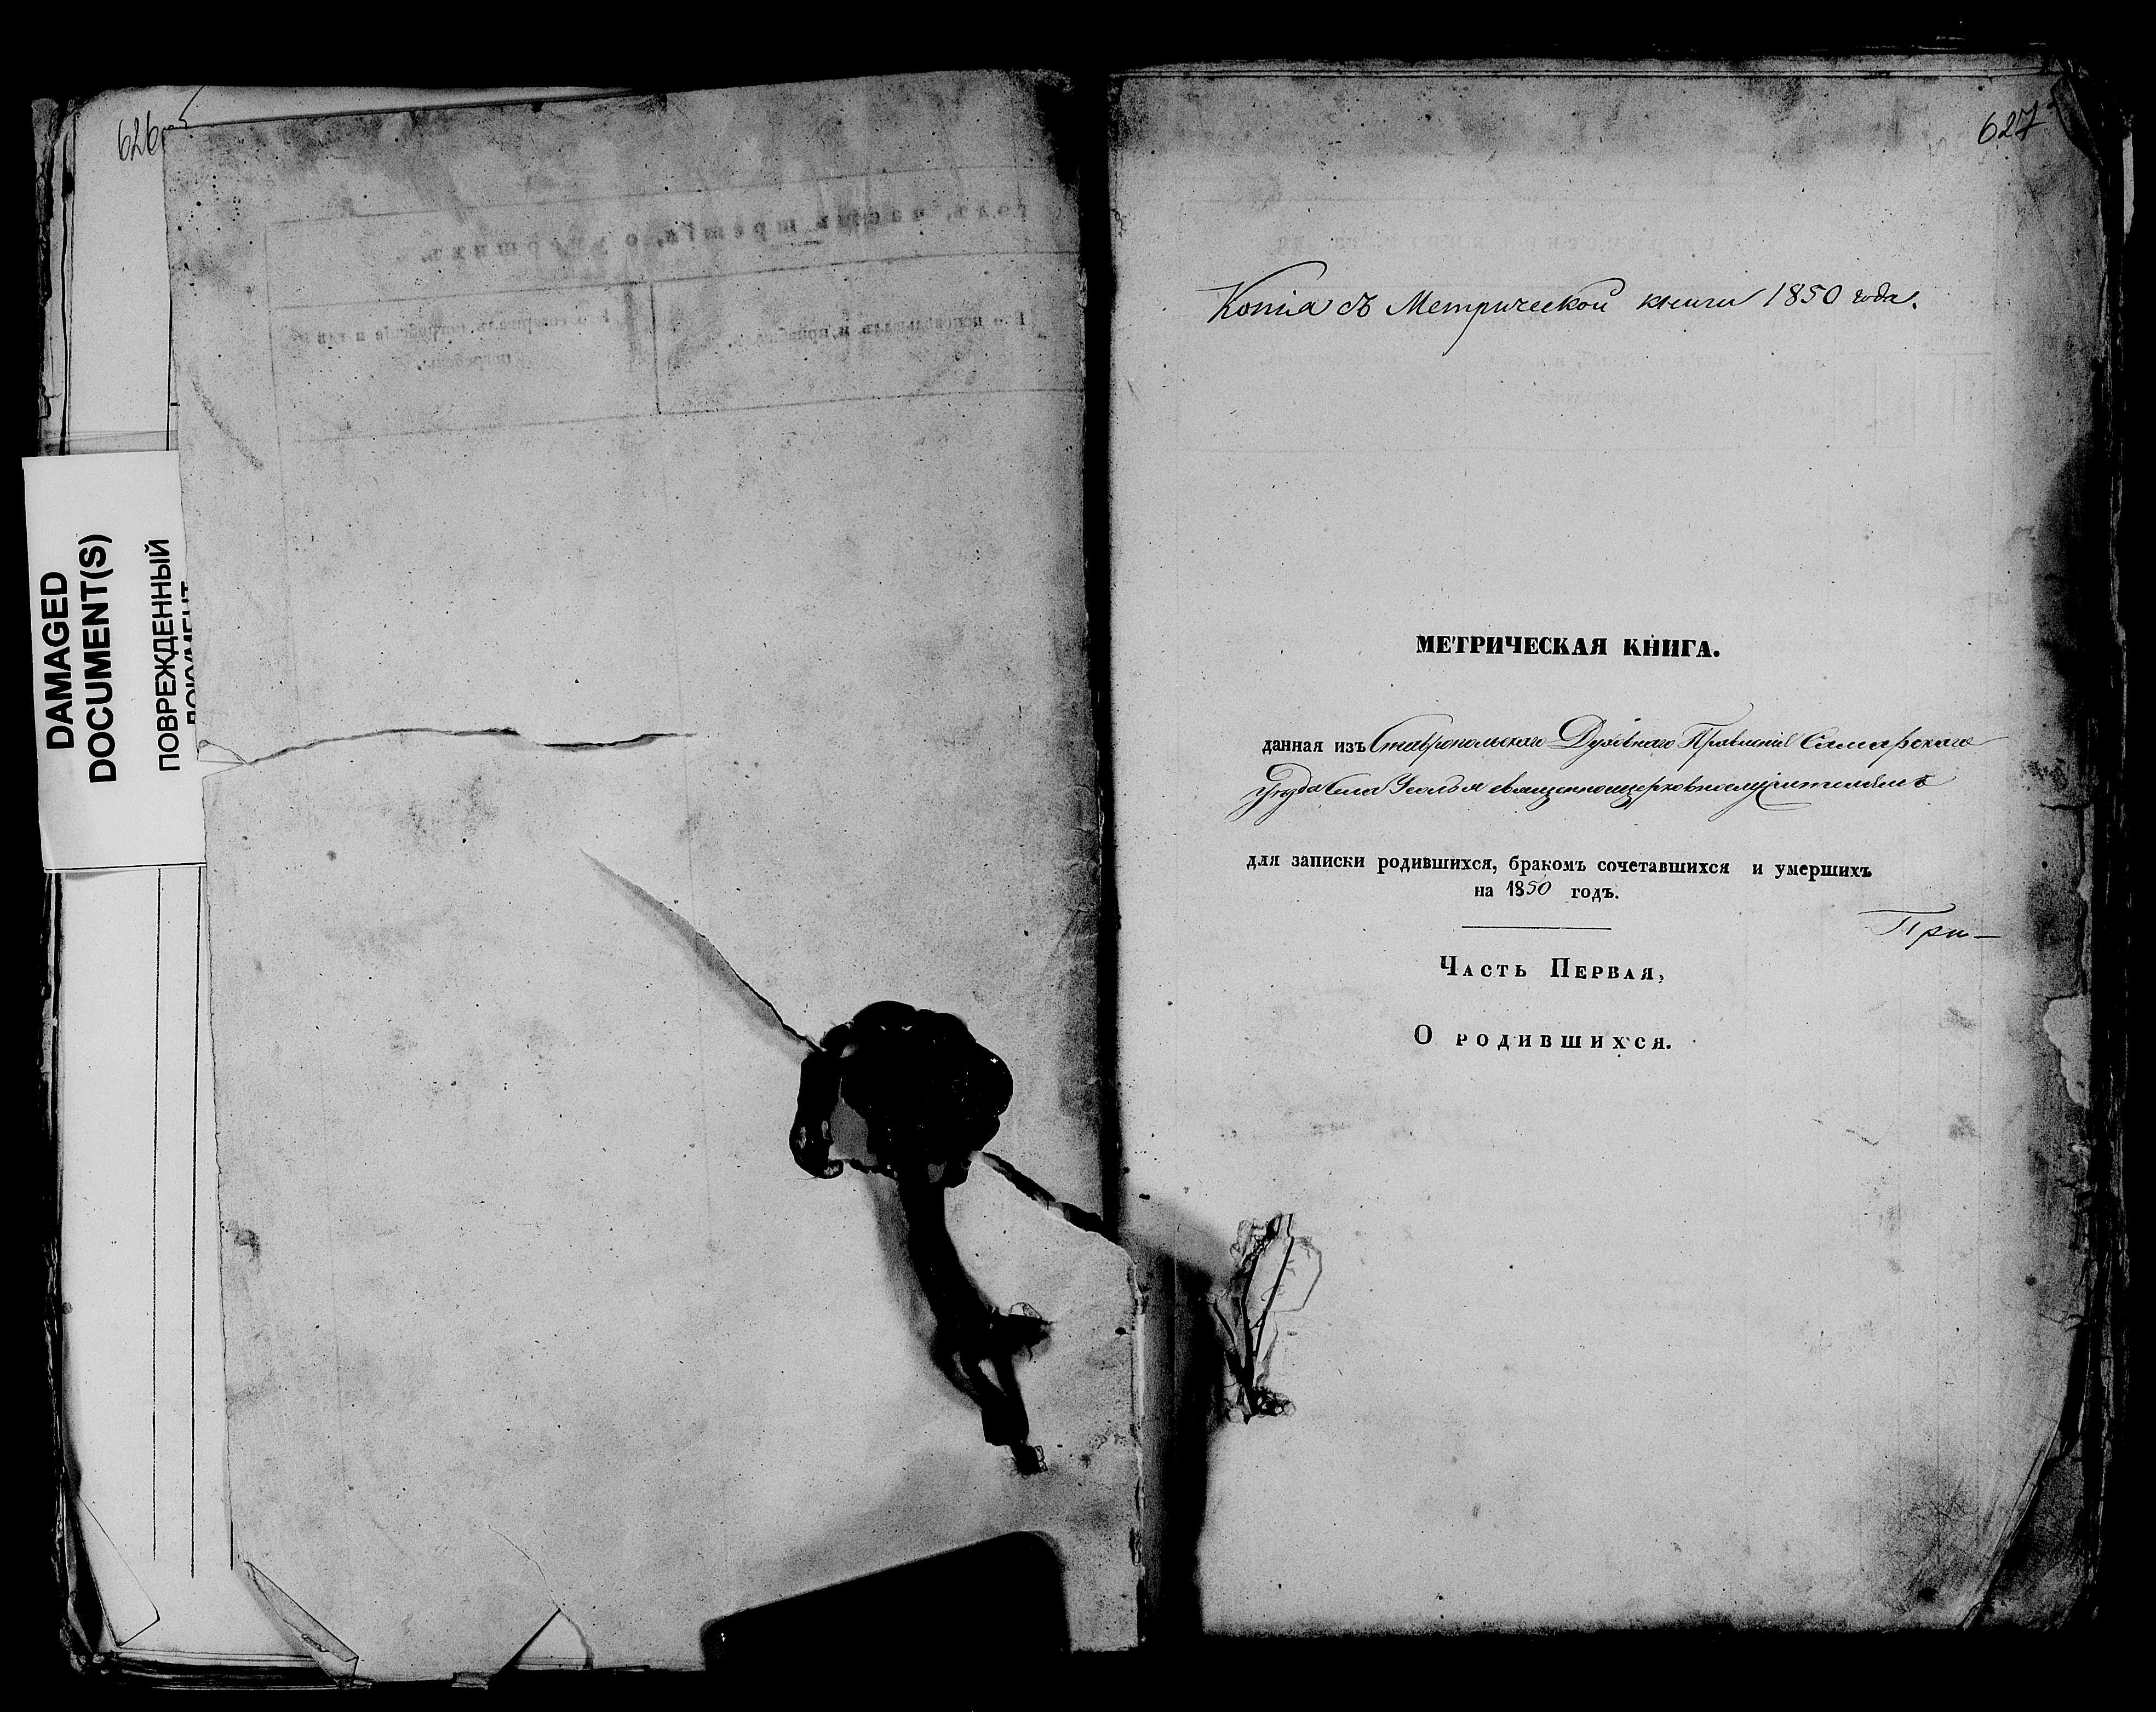 626
DAMAGED
DOCUMENT(S)
ПОВРЕЖДЕННЫЙ
ДОКУМЕНТ
627
Копія съ Метрической книги 1850 года.
МЕТРИЧЕСКАЯ КНИГА.
данная изъ Ставропольскаго Духовнаго Правленія Самарскаго
Уезда села Усолья священноцерковнослужителямъ
для записки родившихся, бракомъ сочетавшихся и умершихъ
на 1850 годъ.
При—
Часть Первая,
О родившихся.